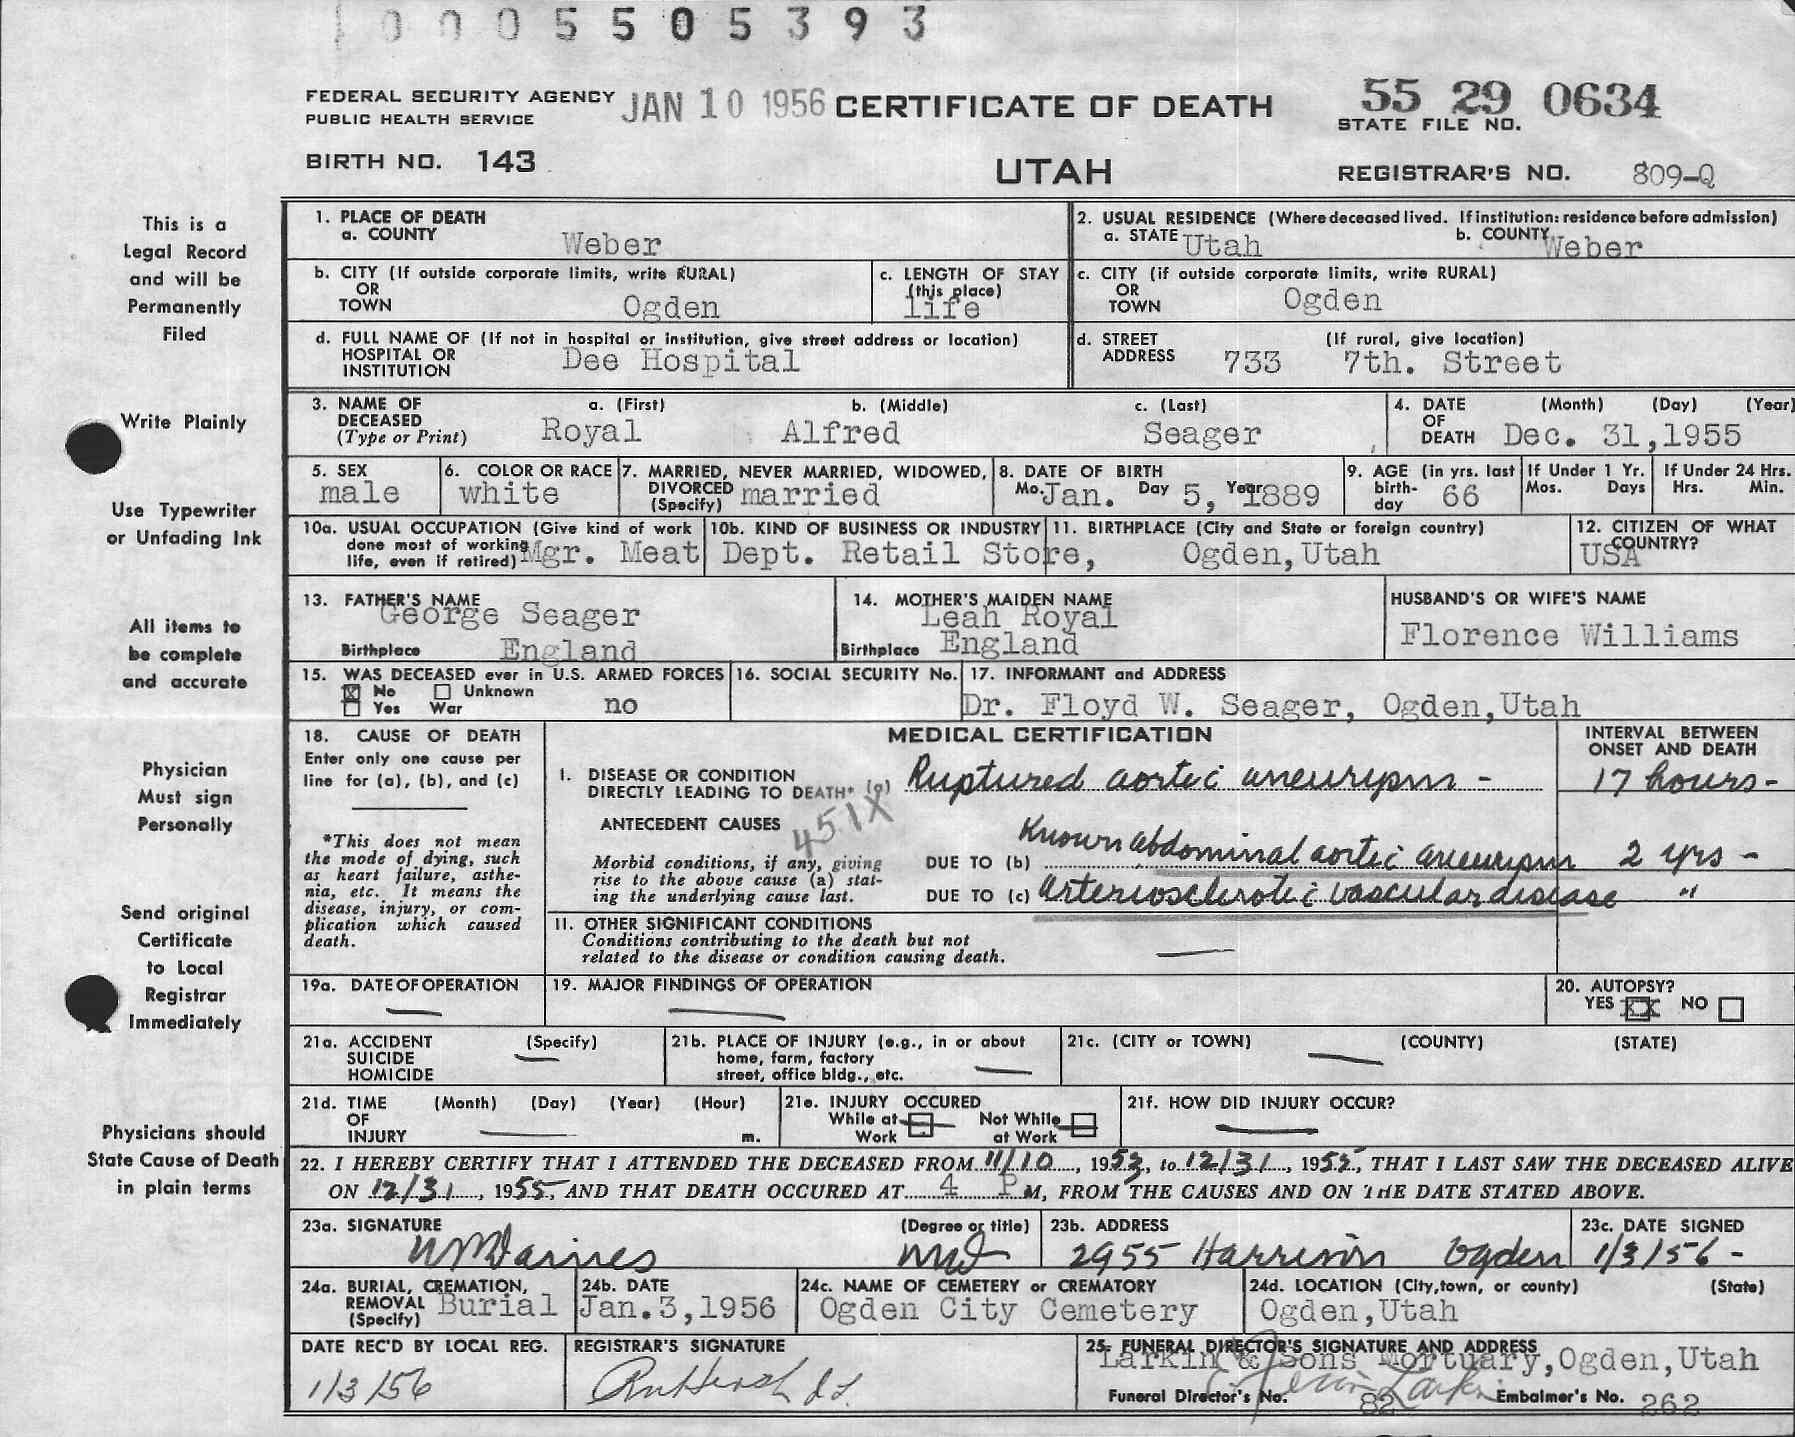 0005505393
FEDERAL SECURITY AGENCY
PUBLIC HEALTH SERVICE
JAN 10 1956
CERTIFICATE OF DEATH
55 29 0634
STATE FILE NO.
BIRTH NO. 143
UTAH
REGISTRAR'S NO. 809-Q
This is a
Legal Record
and will be
Permanently
Filed
Write Plainly
Use Typewriter
or Unfading Ink
All items to
be complete
and accurate
Physician
Must sign
Personally
Send original
Certificate
to Local
Registrar
Immediately
Physicians should
State Cause of Death
in plain terms
1. PLACE OF DEATH
a. COUNTY Weber
2. USUAL RESIDENCE (Where deceased lived. If institution: residence before admission)
a. STATE Utah b. COUNTY Weber
b. CITY (If outside corporate limits, write RURAL)
OR
TOWN Ogden
c. LENGTH OF STAY
(this place)
life
c. CITY (if outside corporate limits, write RURAL)
OR
TOWN Ogden
d. FULL NAME OF (If not in hospital or institution, give street address or location)
HOSPITAL OR
INSTITUTION Dee Hospital
d. STREET (If rural, give location)
ADDRESS 733 7th. Street
3. NAME OF
DECEASED
(Type or Print)
a. (First) b. (Middle) c. (Last)
Royal Alfred Seager
4. DATE (Month) (Day) (Year)
OF
DEATH Dec. 31,1955
5. SEX
male
6. COLOR OR RACE
white
7. MARRIED, NEVER MARRIED, WIDOWED,
DIVORCED
(Specify) married
8. DATE OF BIRTH
Mo. Jan. Day 5, Year 1889
9. AGE (in yrs. last
birth-
day 66
If Under 1 Yr.
Mos. Days
If Under 24 Hrs.
Hrs. Min.
10a. USUAL OCCUPATION (Give kind of work
done most of working
life, even if retired) Mgr. Meat
10b. KIND OF BUSINESS OR INDUSTRY
Dept. Retail Store,
11. BIRTHPLACE (City and State or foreign country)
Ogden,Utah
12. CITIZEN OF WHAT
COUNTRY?
USA
13. FATHER'S NAME
George Seager
Birthplace England
14. MOTHER'S MAIDEN NAME
Leah Royal
Birthplace England
HUSBAND'S OR WIFE'S NAME
Florence Williams
15. WAS DECEASED ever in U.S. ARMED FORCES
No Unknown
Yes War no
16. SOCIAL SECURITY No.
17. INFORMANT and ADDRESS
Dr. Floyd W. Seager, Ogden,Utah
18. CAUSE OF DEATH
Enter only one cause per
line for (a), (b), and (c)
*This does not mean
the mode of dying, such
as heart failure, asthe-
nia, etc. It means the
disease, injury, or com-
plication which caused
death.
MEDICAL CERTIFICATION
INTERVAL BETWEEN
ONSET AND DEATH
I. DISEASE OR CONDITION
DIRECTLY LEADING TO DEATH* (a) Ruptured aortic aneurysm - 17 hours-
451X
ANTECEDENT CAUSES
Morbid conditions, if any, giving
rise to the above cause (a) stat-
ing the underlying cause last.
DUE TO (b) Known abdominal aortic aneurysm 2 yrs -
DUE TO (c) Arteriosclerotic vascular disease "
II. OTHER SIGNIFICANT CONDITIONS
Conditions contributing to the death but not
related to the disease or condition causing death.
19a. DATE OF OPERATION
19. MAJOR FINDINGS OF OPERATION
20. AUTOPSY?
YES XX NO
21a. ACCIDENT (Specify)
SUICIDE
HOMICIDE
21b. PLACE OF INJURY (e.g., in or about
home, farm, factory
street, office bldg., etc.
21c. (CITY or TOWN) (COUNTY) (STATE)
21d. TIME (Month) (Day) (Year) (Hour)
OF
INJURY m.
21e. INJURY OCCURED
While at Not While
Work at Work
21f. HOW DID INJURY OCCUR?
22. I HEREBY CERTIFY THAT I ATTENDED THE DECEASED FROM 11/10, 1953, to 12/31, 1955, THAT I LAST SAW THE DECEASED ALIVE
ON 12/31, 1955, AND THAT DEATH OCCURED AT 4 P M, FROM THE CAUSES AND ON THE DATE STATED ABOVE.
23a. SIGNATURE (Degree or title)
WM Daines MD
23b. ADDRESS
2955 Harrison Ogden
23c. DATE SIGNED
1/3/56-
24a. BURIAL, CREMATION,
REMOVAL
(Specify) Burial
24b. DATE
Jan.3,1956
24c. NAME OF CEMETERY or CREMATORY
Ogden City Cemetery
24d. LOCATION (City,town, or county) (State)
Ogden,Utah
DATE REC'D BY LOCAL REG.
1/3/56
REGISTRAR'S SIGNATURE
25. FUNERAL DIRECTOR'S SIGNATURE AND ADDRESS
Larkin & Sons Mortuary,Ogden,Utah
Funeral Director's No. 82 Embalmer's No. 262